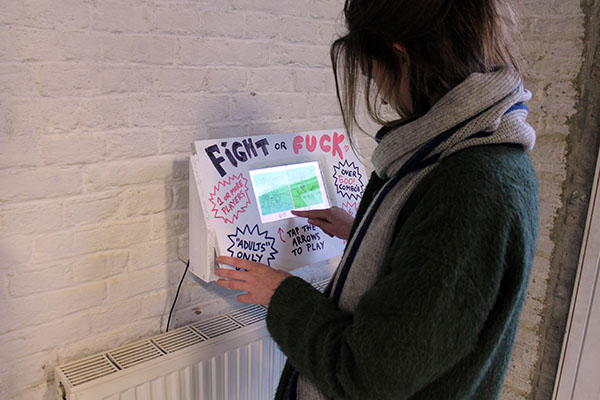 FIGHT OR FUCK
1 OR MORE
PLAYERS
OVER
500!
COMBOS
"ADULTS"
ONLY
TAP THE
ARROWS
TO PLAY